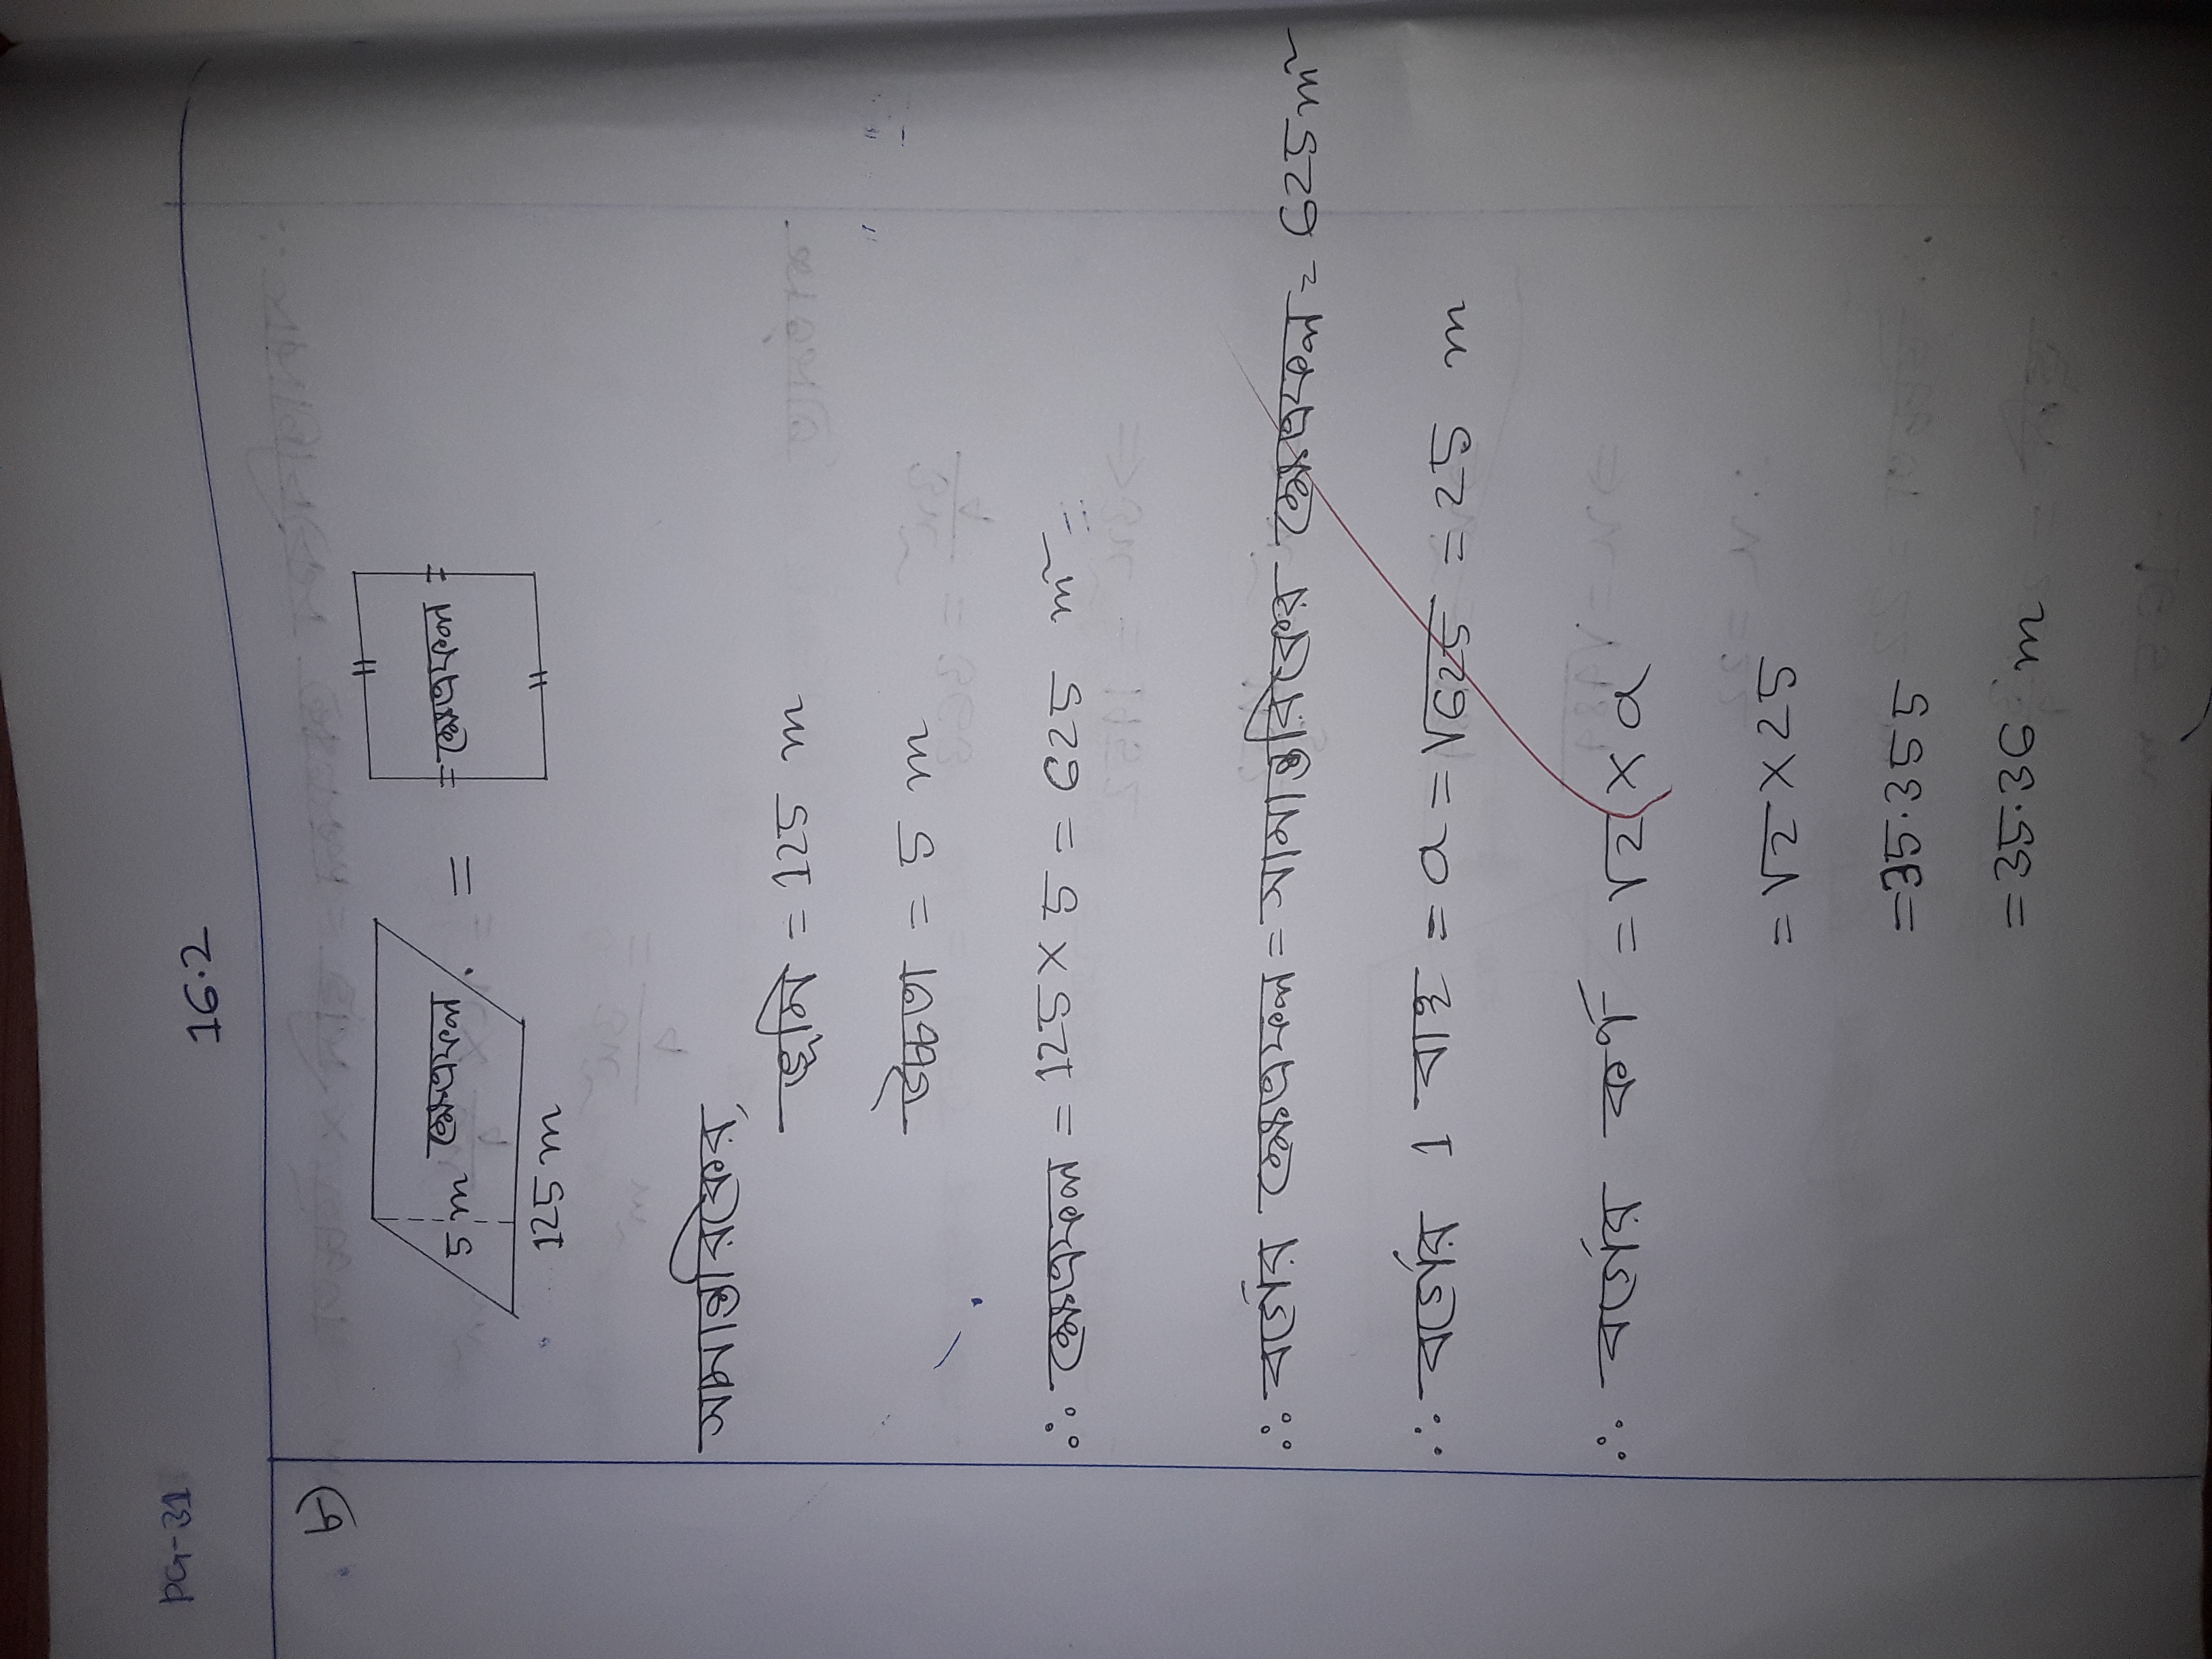 PG-31
16.2
৮)
5 m ক্ষেত্রফল
=
ক্ষেত্রফল
125 m
সামান্তরিকের,
ভূমি = 125 m
উচ্চতা = 5 m
∴ ক্ষেত্রফল = 125 × 5 = 625 m²
∴ বর্গের ক্ষেত্রফল = সামান্তরিকের ক্ষেত্রফল = 625 m²
∴ বর্গের 1 বাহু = a = √625 = 25 m
∴ বর্গের কর্ণ = √2 × a
= √2 × 25
= 35.355
= 35.36 m